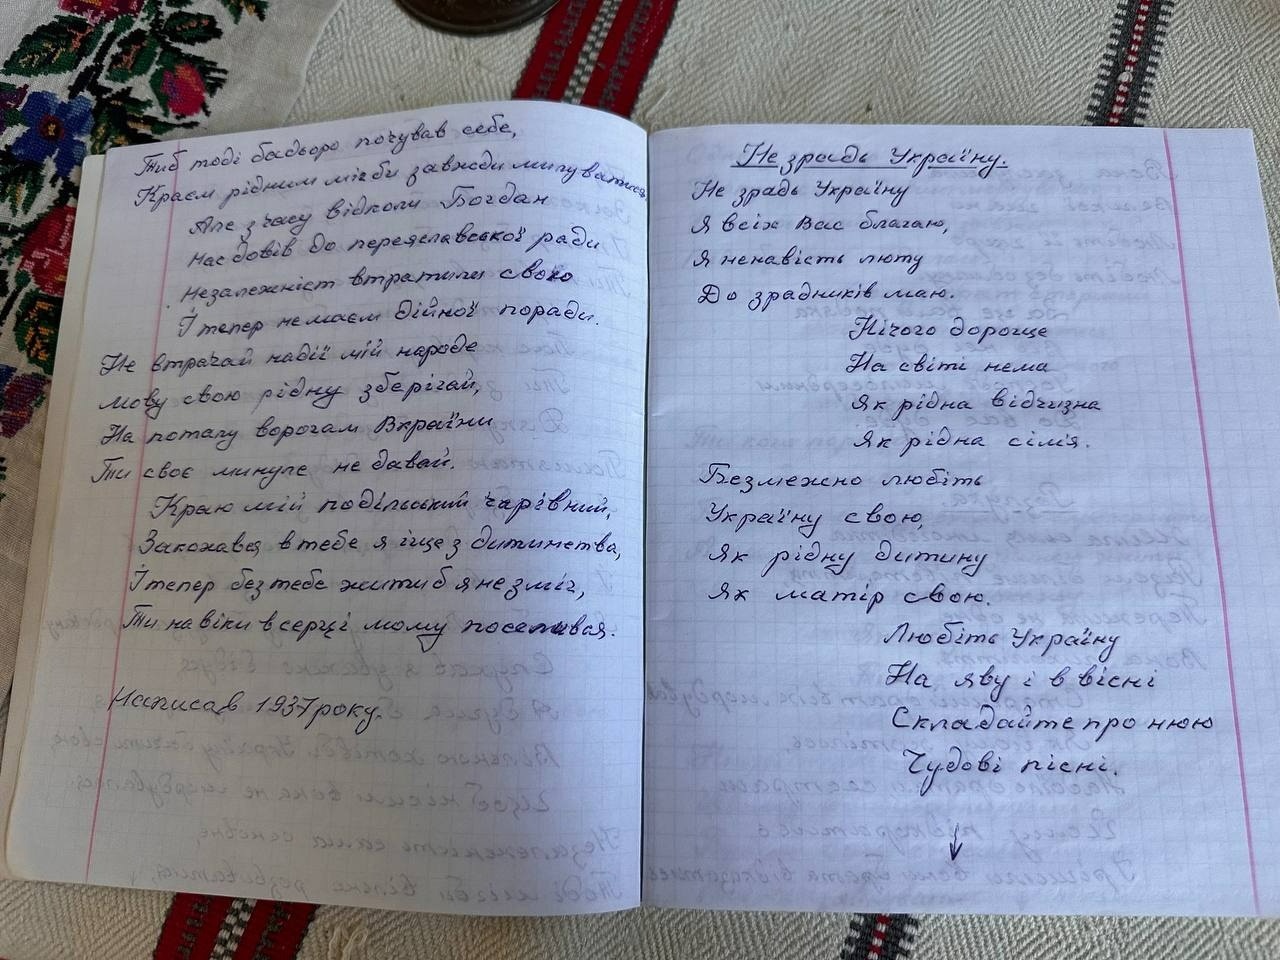 Тиб тоді бадьоро почував себе,
Краєм рідним міг би завжди милуватися
Але з часу відколи Богдан
Нас довів до переяславської ради
Незалежніст втратили свою
І тепер немаєм дійної поради.
Не втрачай надії мій народе
мову свою рідну зберігай,
На поталу ворогам Вкраїни
Ти своє минуле не давай.
Краю мій подільський чарівний,
Закохався в тебе я іще з дитинства,
І тепер без тебе жити б я не зміг,
Ти навіки в серці мому поселився.
Написав 1937 року.
Не зрадь Україну.
Не зрадь Україну
Я всіх Вас благаю,
Я ненавість люту
До зрадників маю.
Нічого дорогще
На світі нема
Як рідна відчизна
Як рідна сімя.
Безмежно любіть
Україну свою,
Як рідну дитину
Як матір свою.
Любіть Україну
На яву і в вісні
Складайте про нюю
Чудові пісні.